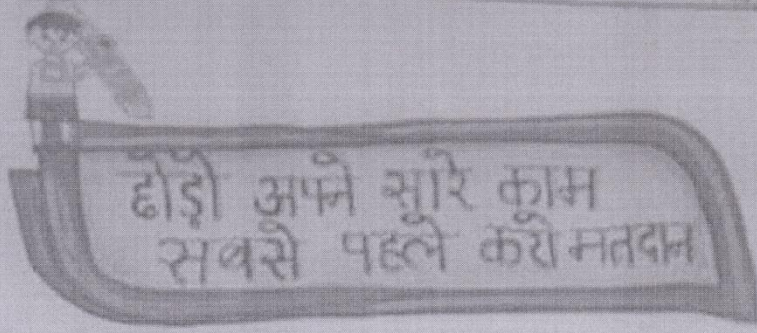 छोड़ो अपने सारे काम
सबसे पहले करो मतदान